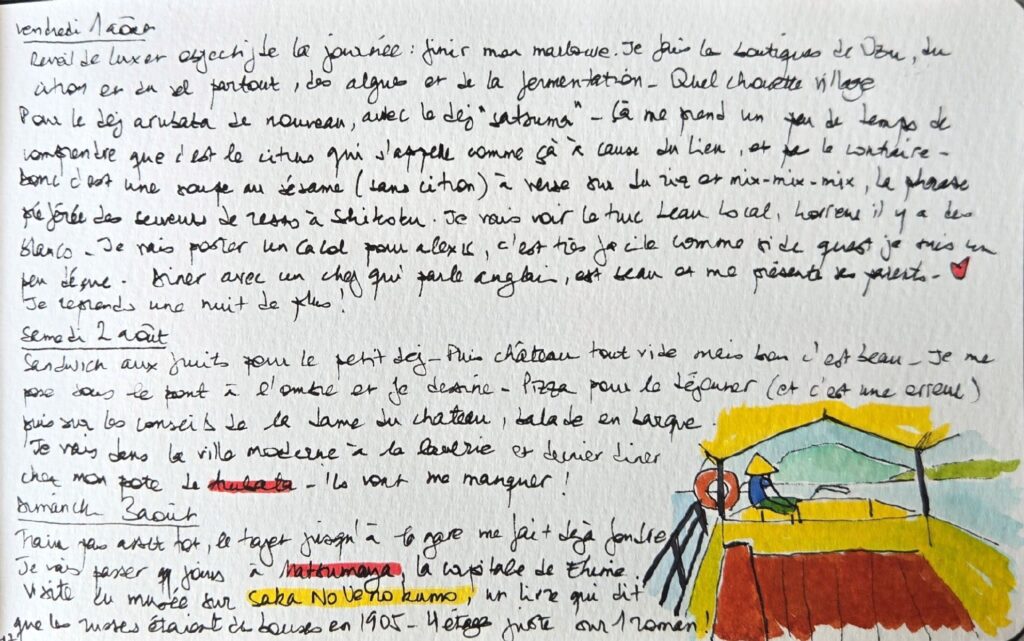 vendredi 1 août
Réveil de luxe objectif de la journée : finir mon marlowe. Je fais les boutiques de Ozu, du
citron et du sel partout, des algues et de la fermentation - Quel chouette village
Pour le déj arubata de nouveau, avec le déj "satsuma" - Çà me prend un peu de temps de
comprendre que c'est le citrus qui s'appelle comme çà à cause du lieu, et pas le contraire -
Donc c'est une soupe au sésame (sans citron) à verser sur du riz et mix-mix-mix, la phrase
préférée des serveurs de resto à Shikoku. Je vais voir le truc beau local, horreur il y a des
blancs - Je vais poster un pour alexis, c'est très facile comme side quest je suis un
peu déçue. Diner avec un chef qui parle anglais, est beau et me présente ses parents - ♥
Je reprends une nuit de plus !
Samedi 2 août
Sandwich aux fruits pour le petit déj - Puis château tout vide mais bon c'est beau - Je me
pose sous le pont à l'ombre et je dessine - Pizza pour le déjeuner (et c'est une erreur)
puis sur les conseils de la dame du chateau, balade en barque.
Je vais dans la ville moderne à la laverie et dernier diner
chez mon pote de - ils vont me manquer !
Dimanche 3 août
Train pas assez tot, le trajet jusqu'à la gare me fait déjà fondre
Je vais passer jours à Matsumaya, la capitale de Ehime
visite du musée sur Saka No Ue no kumo, un livre qui dit
que les russes étaient des bouses en 1905 - 4 étages juste sur 1 roman !